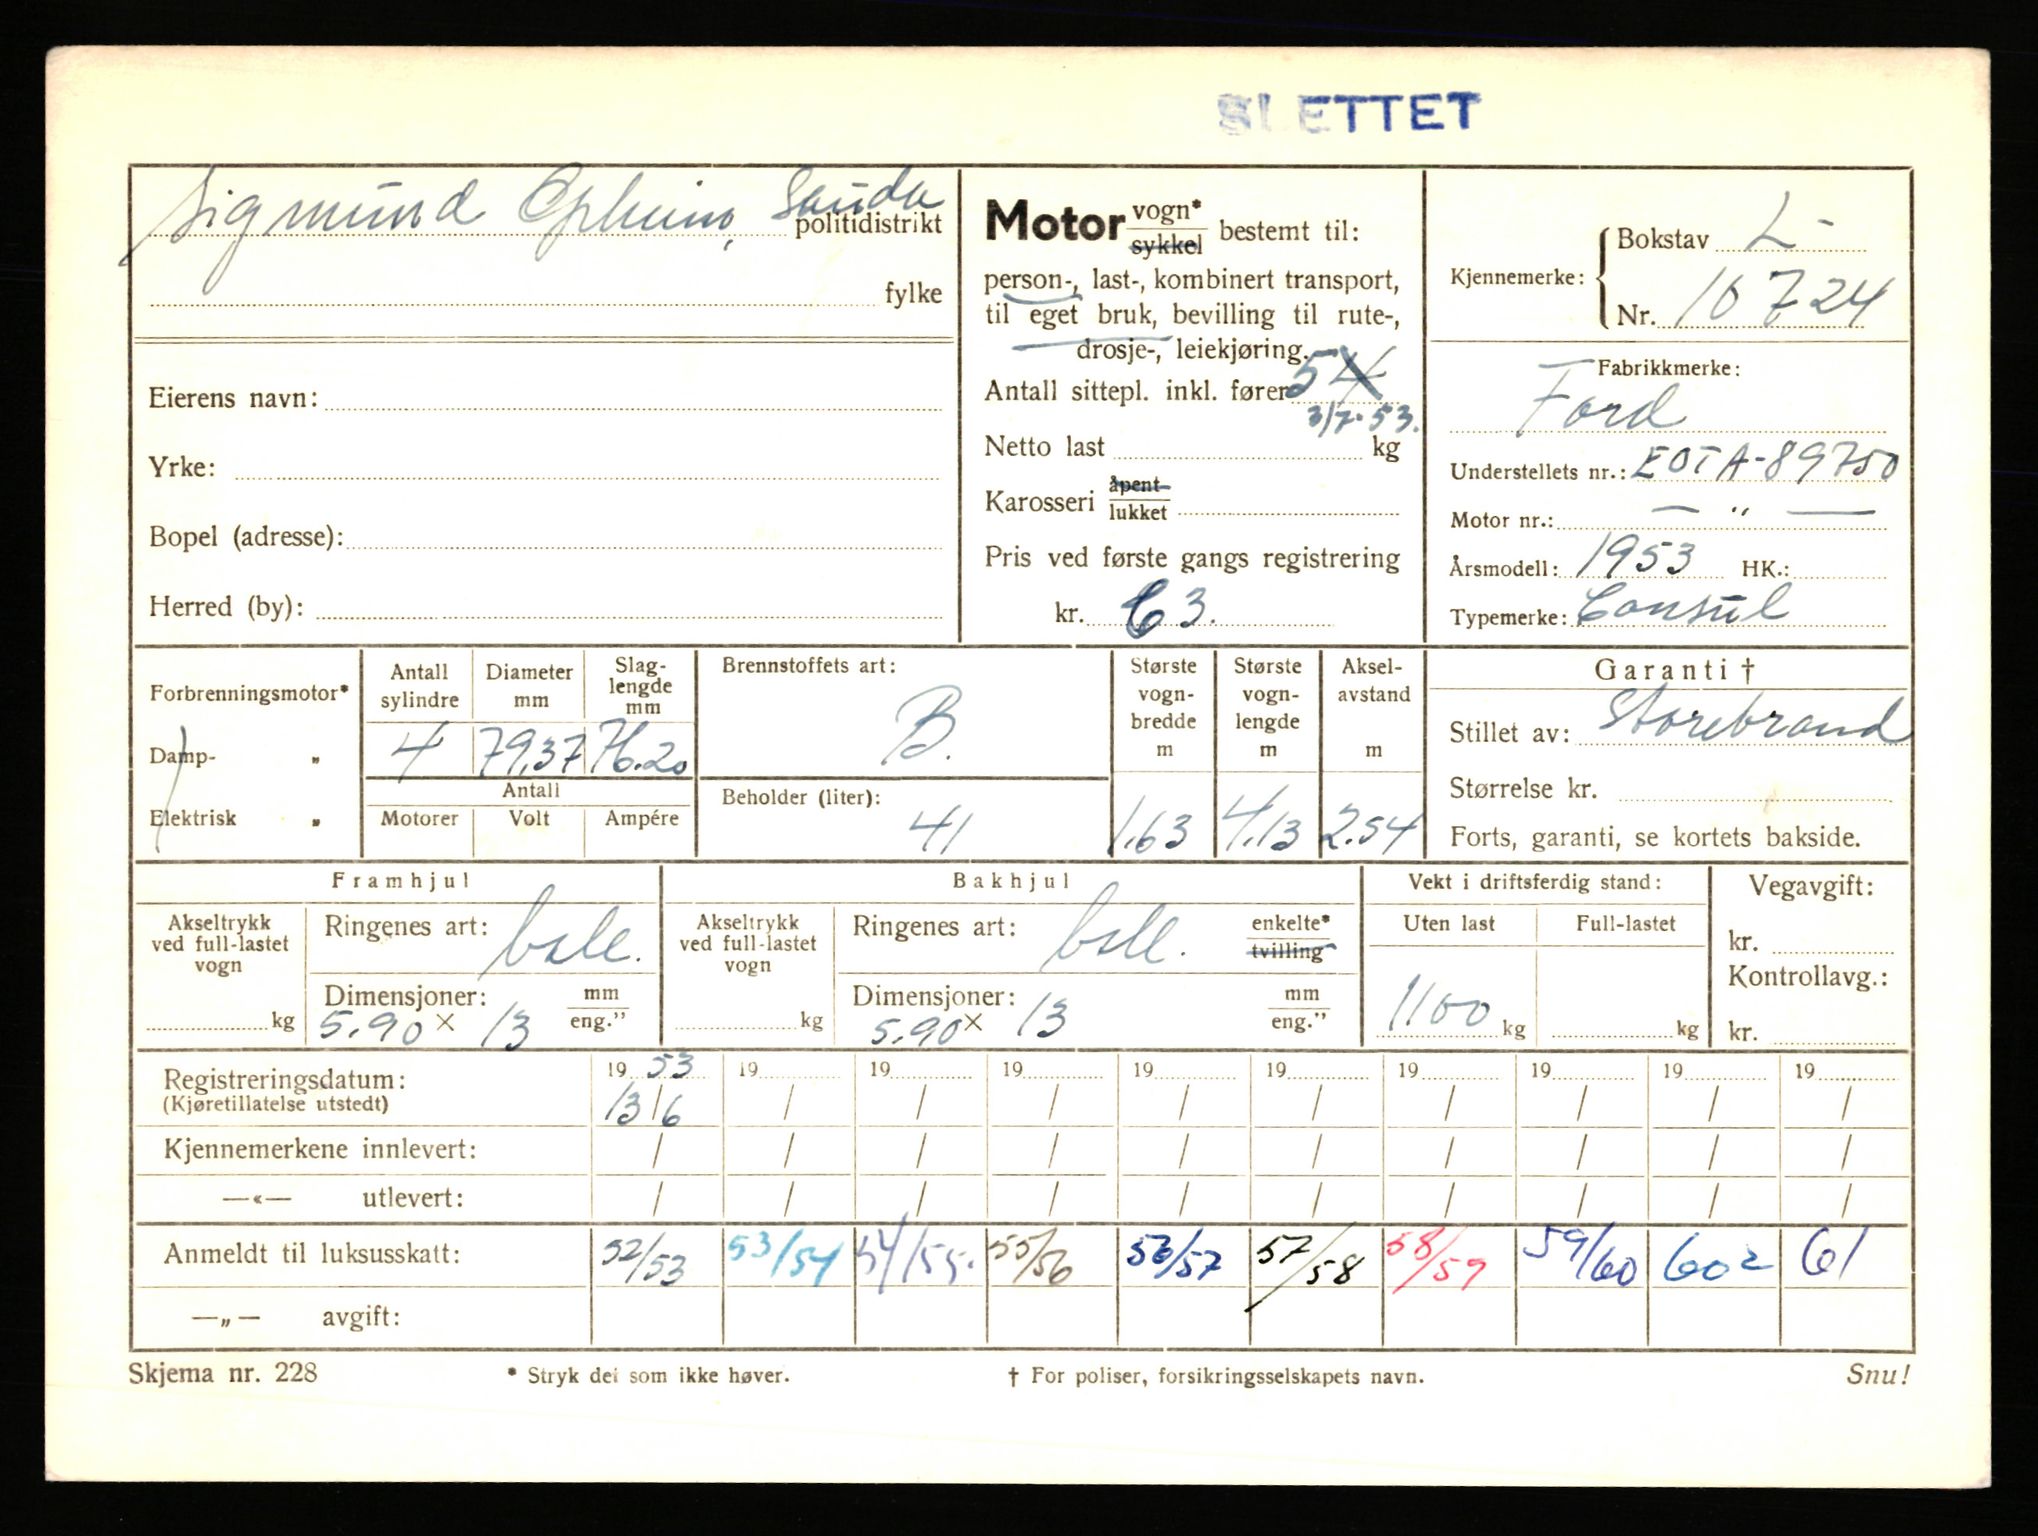 SLETTET
Sigmund Sauda
politidistrikt
fylke
Eierens navn:
Yrke:
Bopel (adresse):
Herred (by):
Motor vogn* sykkel bestemt til:
person-, last-, kombinert transport,
til eget bruk, bevilling til rute-,
drosje-, leiekjøring.
Antall sittepl. inkl. fører 5 4
3/7-53.
Netto last kg
Karosseri åpent lukket
Pris ved første gangs registrering
kr. C3.
Kjennemerke: Bokstav L-
Nr. 16724
Fabrikkmerke:
Ford
Understellets nr.: EOTA-89750
Motor nr.: — " —
Årsmodell: 1953 HK.:
Typemerke: Consul
Forbrenningsmotor*
Damp- „
Elektrisk „
Antall sylindre Diameter mm Slag-lengde mm
4 79,37 76.20
Antall
Motorer Volt Ampére
Brennstoffets art:
B.
Beholder (liter):
41
Største vogn-bredde m
1.63
Største vogn-lengde m
4.13
Aksel-avstand m
2.54
Garanti †
Stillet av: Storebrand
Størrelse kr.
Forts, garanti, se kortets bakside.
Framhjul
Akseltrykk ved full-lastet vogn
kg
Ringenes art: ball.
Dimensjoner: mm eng."
5.90 x 13
Bakhjul
Akseltrykk ved full-lastet vogn
kg
Ringenes art: ball. enkelte* tvilling
Dimensjoner: mm eng."
5.90 x 13
Vekt i driftsferdig stand:
Uten last Full-lastet
1100 kg kg
Vegavgift:
kr.
Kontrollavg.:
kr.
Registreringsdatum: 19 53 19 19 19 19 19 19 19 19 19
(Kjøretillatelse utstedt) 13/6 / / / / / / / / /
Kjennemerkene innlevert: / / / / / / / / / /
—«— utlevert: / / / / / / / / / /
Anmeldt til luksusskatt: 52/53 53/54 54/55. 55/56 56/57 57/58 58/59 59/60 602 61
—„— avgift:
Skjema nr. 228 * Stryk det som ikke høver. † For poliser, forsikringsselskapets navn. Snu!